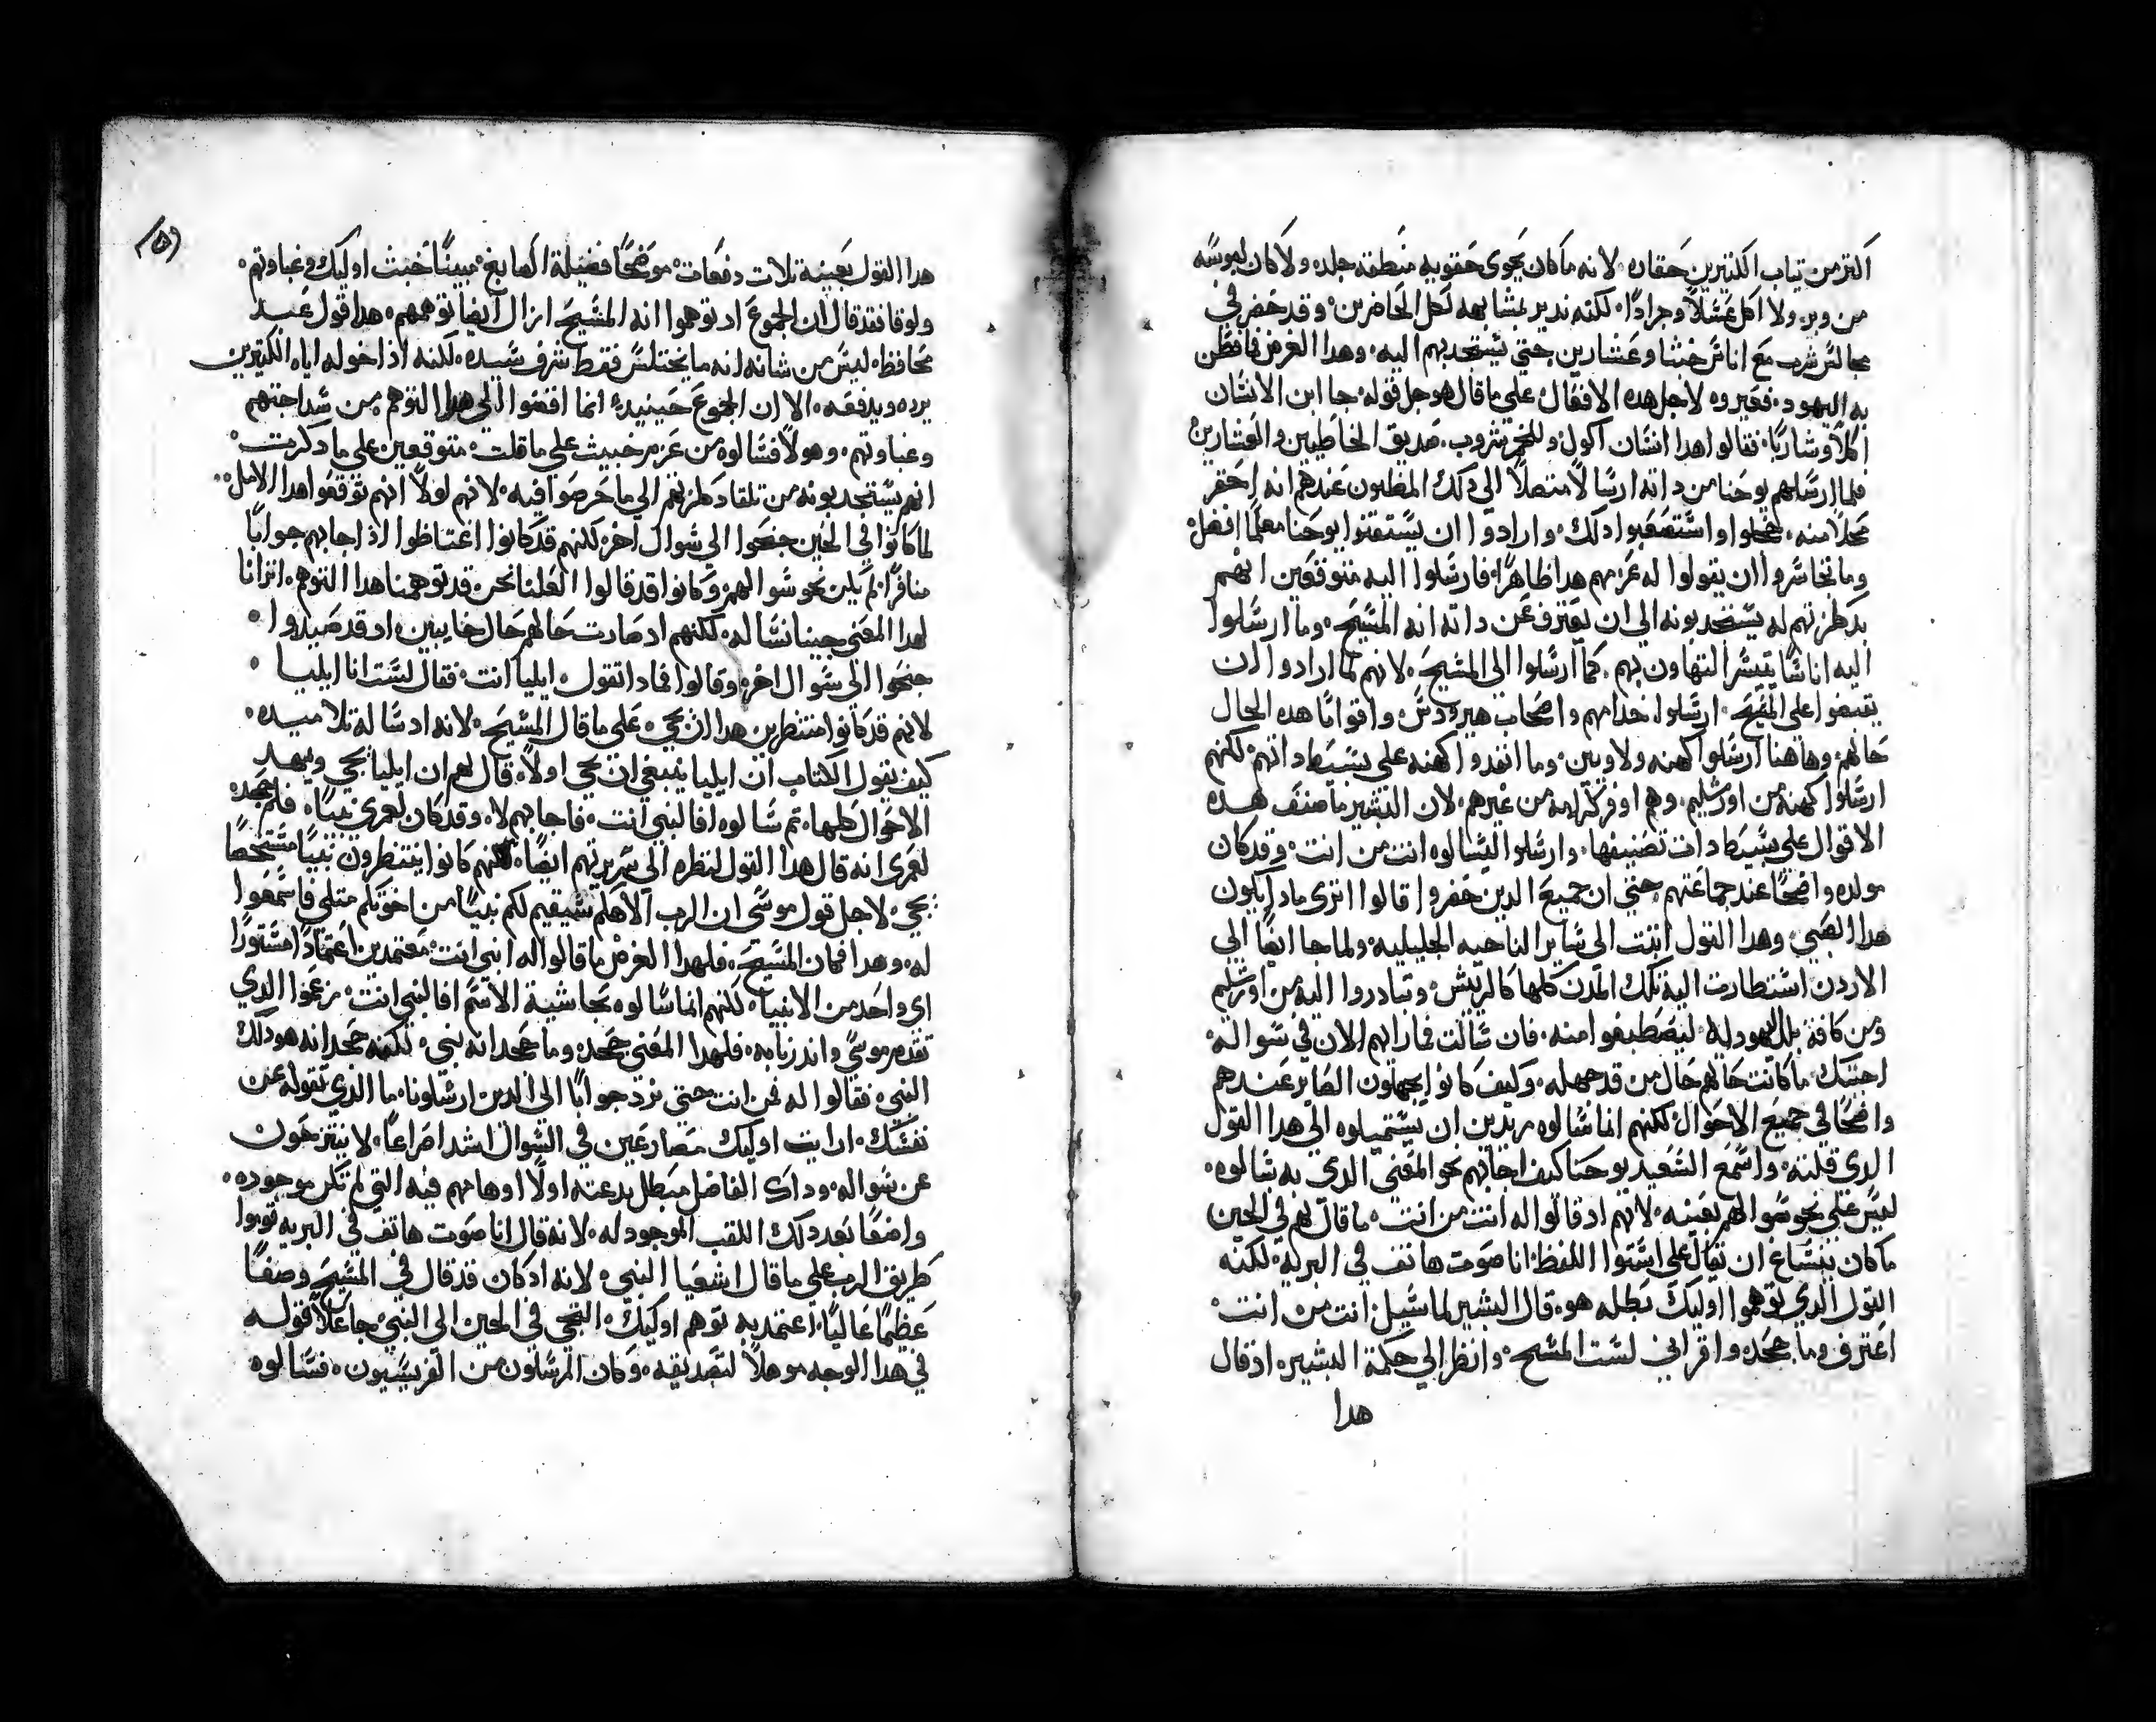 اكتر من تياب الكتيرين حقاره، لانه ما كان يحوي حقويه منطقه جلد، ولا كان لبوسه
من وبر، ولا اكل عسلاً وجرادًا، لكنه تدبر بمشابهه لكل الحاضرين، وقد حضر في
مجالس شرب مع اناس خبثا وعشارين حتي يستجدبهم اليه، وهدا الغرض فا فطن
به اليهود، فعيروه لاجل هده الافعال، علي ما قال هو جل قوله، جا ابن الانسان
اكلاً وشاربًا، فقالوا هدا انسان اكول، وللخمر شروب، صديق الخاطيين والعشارين
فلما ارسلهم يوحنا من داته ارسالاً متصلاً الي دلك المظنون عندهم انه احقر
محلاً منه، خجلوا واستصعبوا دلك، وارادوا ان يستقنوا يوحنا معلمًا افضل،
وما تجاسروا ان يقولوا له عزمهم هدا ظاهرًا، فارسلوا اليه متوقعين انهم
بدكلزتهم له يستجدبونه الي ان يعترف عن داته انه المسيح، وما ارسلوا
اليه اناسًا تيسر التهاون بهم، كما ارسلوا الي المسيح، لانهم لما ارادوا ان
يقبضوا علي المسيح، ارسلوا خدامهم واصحاب هيرودس، واقوامًا هده الحال
حالهم، وهاهنا ارسلوا كهنه ولاويين، وما انفدوا كهنه علي بسيط داتهم، لكنهم
ارسلوا كهنه من اورشليم، وهم اوفر كرامه من غيرهم، لان البشير ما صنف هده
الاقوال علي بسيط دات تصنيفها، وارسلوا ليسالوه انت من انت، وقد كان
مولده واضحًا عند جماعتهم، حتي ان جميع الدين حضروا قالوا اتري مادا يكون
هدا الصبي، وهدا القول انبت الي ساير الناحيه الجليليه، ولما جا ايضًا الي
الاردن استطارت اليه تلك المدن كلها كالريش، وتبادروا اليه من اورشليم
ومن كافة بلد اليهوديه، ليصطبغوا منه، فان سالت فما رايهم الان في سواله،
اجبتك، ما كانت حالهم حال من قد جهله، وكيف كانوا يجهلون الصاير عندهم
واضحًا في جميع الاحوال، لكنهم انما سالوه مريدين ان يستميلوه الي هدا القول
الدي قلته، واسمع السعيد يوحنا كيف اجابهم نحو المعني الدي به سالوه،
ليس علي نحو سوالهم بعينه، لانهم اد قالوا له انت من انت، ما قال لهم في الحين
ما كان ينساغ ان يقال علي استوا اللفظ، انا صوت هاتف في البريه، لكنه
القول الدي توهموا اوليك بطله هو، قال البشير لما سيل، انت من انت،
اعترف وما جحد، واقر اني لست المسيح، وانظر الي حكمة البشير، اد قال
هدا
هدا القول بعينه تلات دفعات، موضحًا فضيلة الصابغ، مبينًا خبث اوليك وغباوتهم،
ولوقا فقد قال ان الجموع اد توهموا انه المسيح ازال ايضًا توهمهم، هدا قول عبد
محافظ، ليس من شانه انه ما يختلس فقط شرف سيده، لكنه ادا خوله اياه الكتيرين
يرده ويدفعه، الا ان الجموع حينيدٍ انما افضوا الي هدا التوهم من سداجتهم
وغباوتهم، وهولا فسالوه من عزم خبيث علي ما قلت، متوقعين علي ما دكرت،
انهم يستجدبونه من تلقا دكلزتهم الي ما حرصوا فيه، لانهم لولا انهم توقعوا هدا الامل،
لما كانوا في الحين جنحوا الي سوال اخر، لكنهم قد كانوا اغتاظوا اد اجابهم جوابًا
منافرًا، لم يكن نحو سوالهم، وكانوا قد قالوا العلنا نحن قد توهمنا هدا التوهم، اترانا
لهدا المعني جينا نساله، لكنهم اد صارت حالهم حال خايبين، اد قد صيدوا،
جنحوا الي سوال اخر، وقالوا فمادا تقول، ايليا انت، فقال لست انا ايليا،
لانهم قد كانوا منتظرين هدا ان يجي، علي ما قال المسيح، لانه اد ساله تلاميده،
كيف تقول الكتاب ان ايليا ينبغي ان يجي اولاً، قال لهم ان ايليا يجي ويمهد
الاحوال كلها، تم سالوه افالنبي انت، فاجابهم لا، وقد كان لعمري نبيًا، فلم جحده
لعمري انه قال هدا القول لنظره الي سريرتهم ايضًا، لانهم كانوا ينتظرون نبيًا مشخصًا
يجي، لاجل قول موسي ان الرب الاهكم سيقيم لكم نبيًا من اخوتكم متلي فاسمعوا
له، وهدا فكان المسيح، فلهدا الغرض ما قالوا له انبي انت، معتمدين اعتمادًا مستورًا
اي واحد من الانبيا، لكنهم انما سالوه بحاشية الاسم افالنبي انت، مزعوا الدي
تقدم موسي واندر بانه، فلهدا المعني جحد، وما جحد انه نبي، لكنه جحد انه هو دلك
النبي، فقالوا له فمن انت حتي نرد جوابًا الي الدين ارسلونا، ما الدي تقوله عن
نفسك، ارايت اوليك مضارعين في السوال اشد اضراعًا، لا ينتزحون
عن سواله، وداك الفاضل مبطل بدعته اولاً اوهامهم فيه التي لم تكن موجوده،
واضعًا بعد دلك اللقب الموجود له، لانه قال انا صوت هاتف في البريه قوموا
طريق الرب علي ما قال اشعيا النبي، لانه اد كان قد قال في المسيح وصفًا
عظيمًا عاليًا، اعتمد به توهم اوليك، التجي في الحين الي النبي، جاعلاً قوله
في هدا الوجه موهلاً لتصديقه، وكان المرسلون من الفريسيون، فسالوه